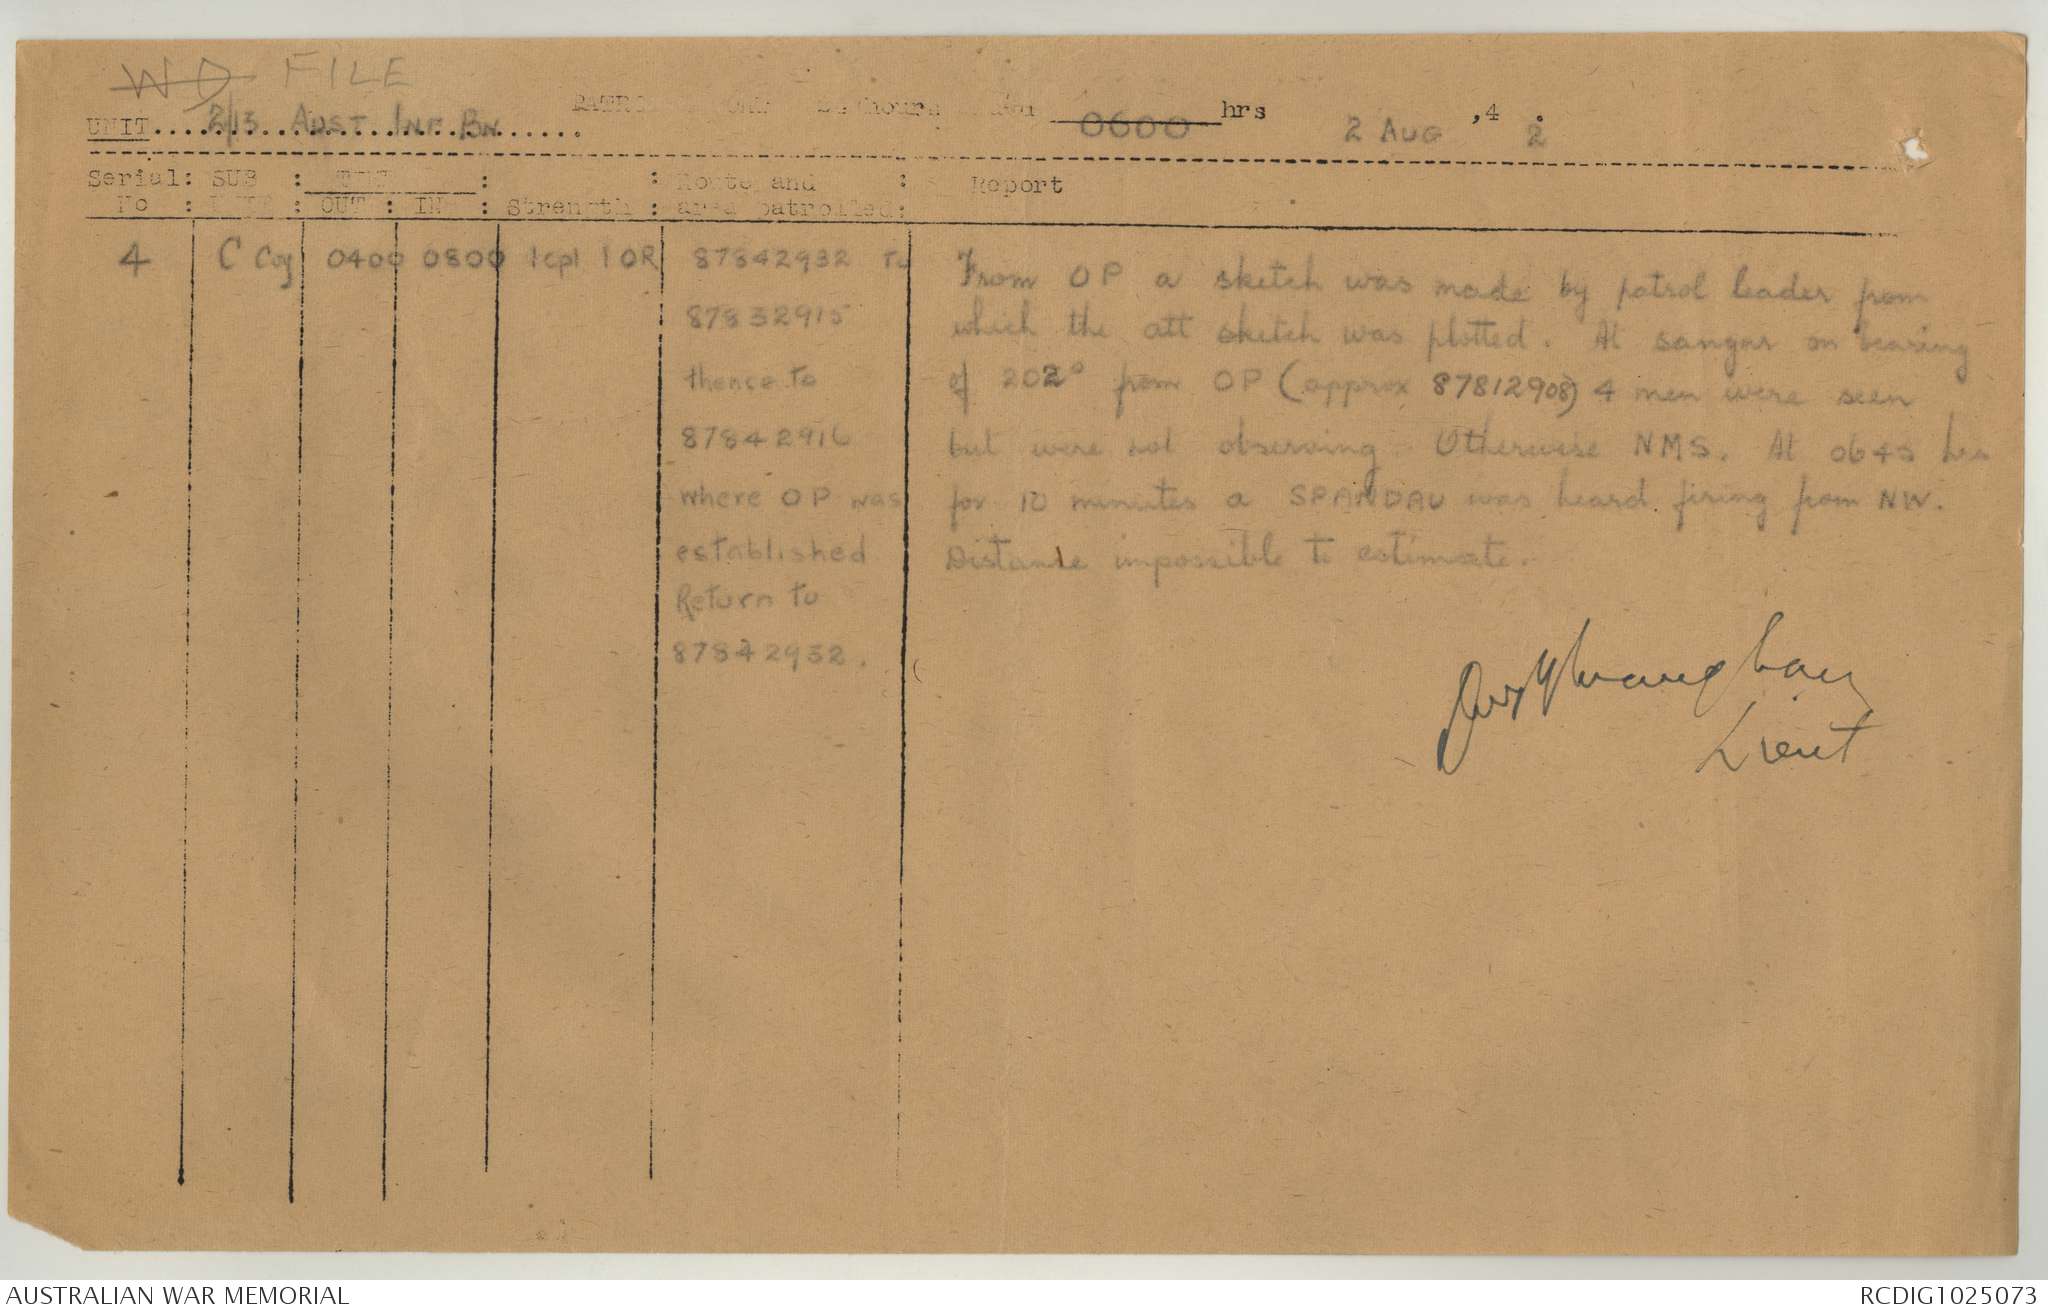 WD FILE
UNIT....2/13 AUST INF BN.....
hours
0600 hrs 2 AUG ,4 2.
Serial: SUB : : : Route and : Report
No : : OUT : IN : Strength : area patrolled:
4 C Coy 0400 0800 1 cpl 1 OR 87842932 to
87832915
thence to
87842916
where OP was
established
Return to
87842932.
From OP a sketch was made by patrol leader from
which the att sketch was plotted. At sangar on bearing
of 202° from OP (approx 87812908) 4 men were seen
but were not observing. Otherwise NMS. At 0645 hrs
for 10 minutes a SPANDAU was heard firing from NW.
Distance impossible to estimate.
Lieut
AUSTRALIAN WAR MEMORIAL
RCDIG1025073